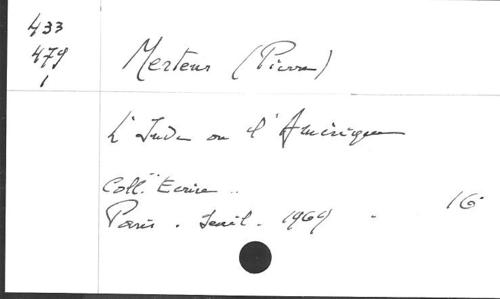 433
479
1
Mertens (Pierre)
L'Inde ou l'Amérique
Coll. "Ecrire"
Paris. Seuil. 1969. 16°